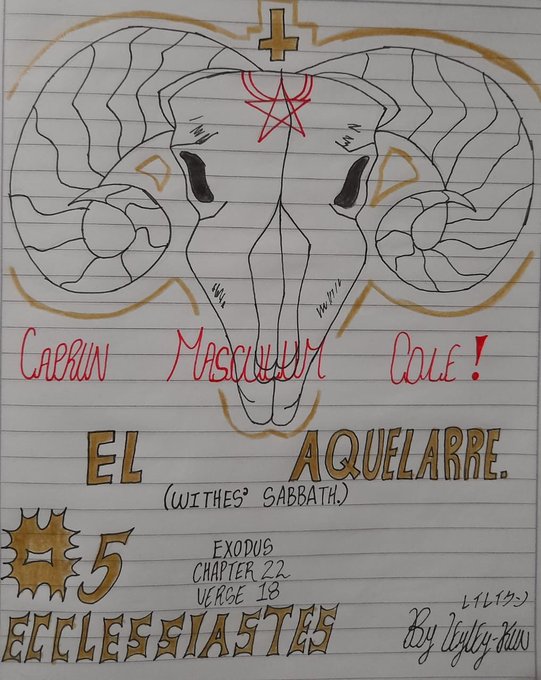 CAPRUN MASCULUM COLE!
EL AQUELARRE.
(WITHES' SABBATH.)
#5
EXODUS
CHAPTER 22
VERSE 18
ECCLESSIASTES
レイレイクン
By LEYLEY-KUN